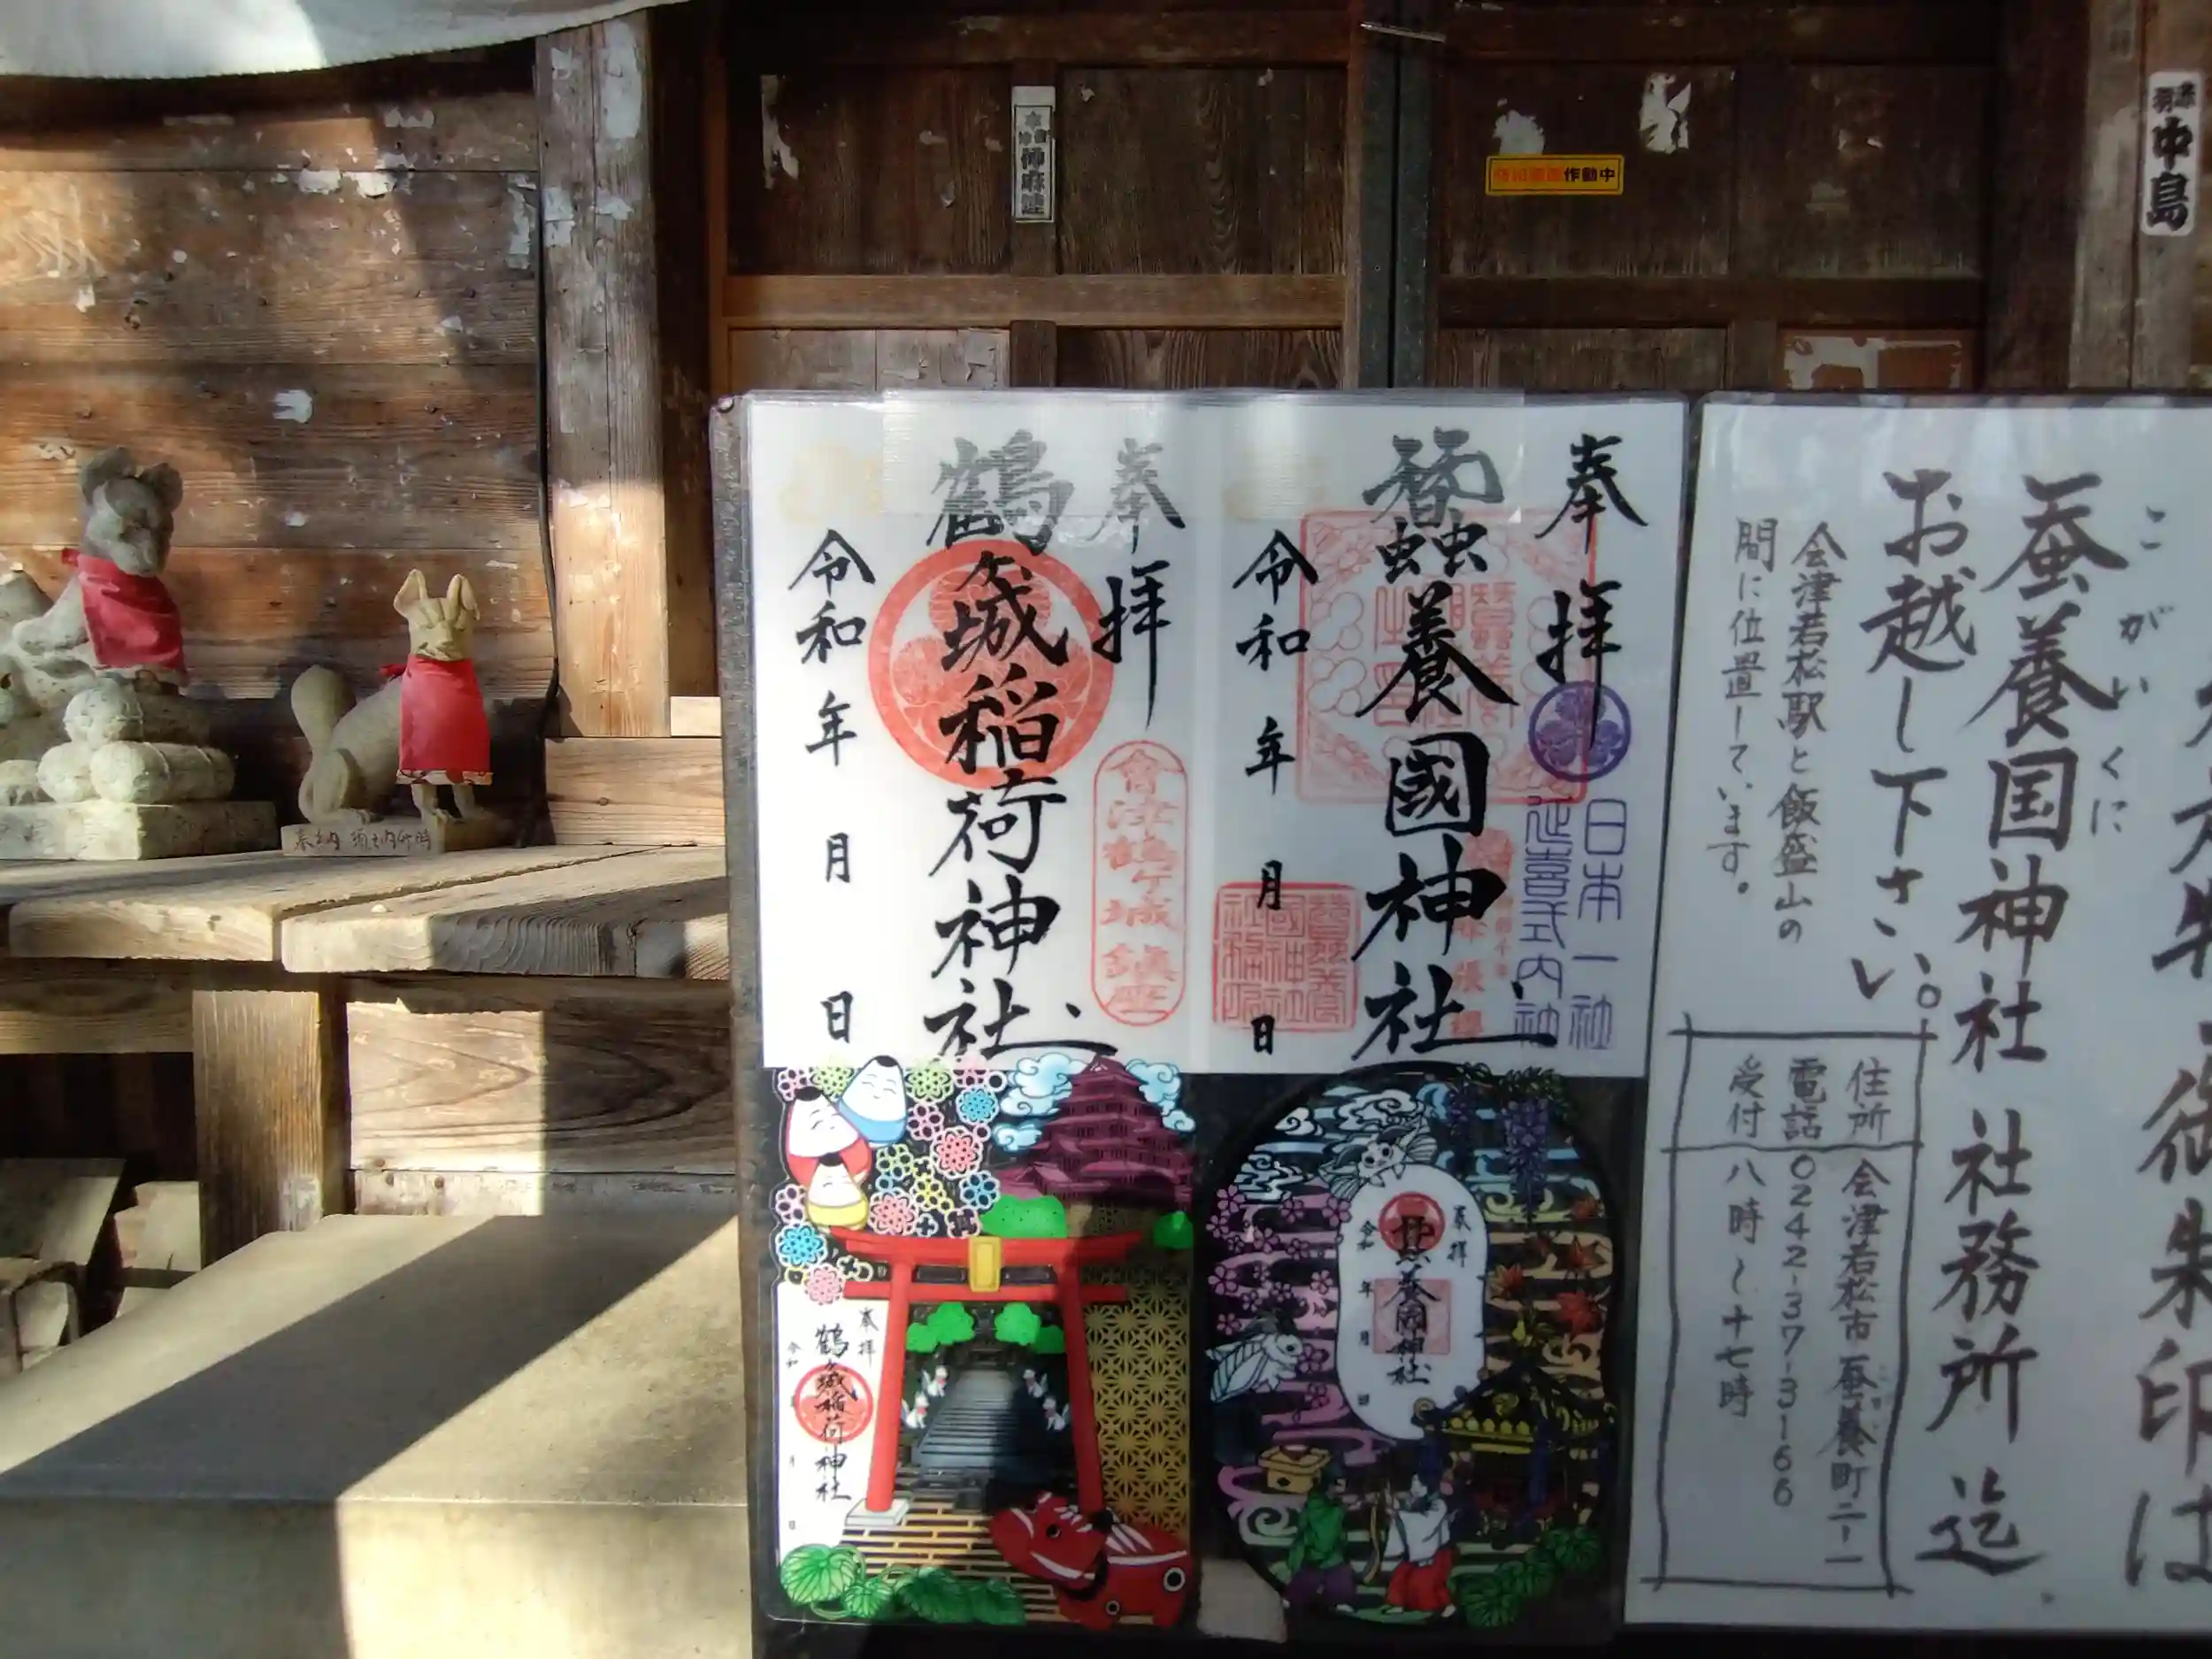 中島
作動中
御朱印は
こがいくに
蚕養国神社 社務所 迄
お越し下さい。
会津若松駅と飯盛山の
間に位置しています。
住所 会津若松市蚕養町二-一
電話 0242-37-3166
受付 八時〜十七時
奉拝
日本一社
延喜式内社
蠶養國神社
令和 年 月 日
奉拝
會津鶴ヶ城鎮座
鶴ヶ城稲荷神社
令和 年 月 日
奉拝
鶴ヶ城稲荷神社
令和 月 日
奉拝
蠶養國神社
令和 年 月 日
奉納